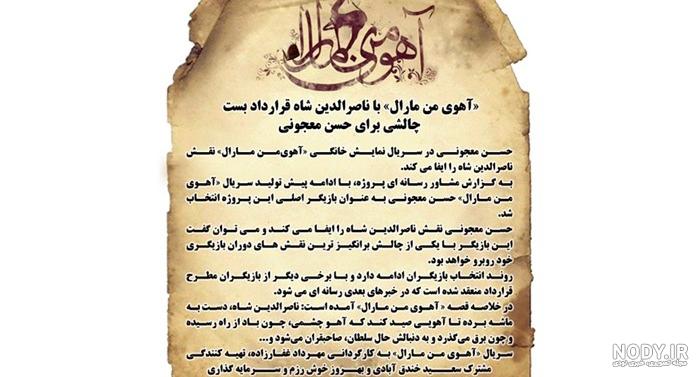 آهوی من مارال
«آهوی من مارال» با ناصرالدین شاه قرارداد بست
چالشی برای حسن معجونی
حسن معجونی در سریال نمایش خانگی «آهوی‌من مارال» نقش
ناصرالدین شاه را ایفا می کند.
به گزارش مشاور رسانه ای پروژه، با ادامه پیش تولید سریال «آهوی
من مارال» حسن معجونی به عنوان بازیگر اصلی این پروژه انتخاب
شد.
حسن معجونی نقش ناصرالدین شاه را ایفا می کنند و می توان گفت
این بازیگر با یکی از چالش برانگیز ترین نقش های دوران بازیگری
خود روبرو خواهد بود.
روند انتخاب بازیگران ادامه دارد و با برخی دیگر از بازیگران مطرح
قرارداد منعقد شده است که در خبرهای بعدی رسانه ای می شود.
در خلاصه قصه «آهوی من مارال» آمده است: ناصرالدین شاه، دست به
ماشه برده تا آهویی صید کند که آهو چشمی، چون باد از راه رسیده
و چون برق می‌گذرد و به دنبالش حال سلطان، صاحبقران می‌شود و...
سریال «آهوی من مارال» به کارگردانی مهرداد غفارزاده، تهیه کنندگی
مشترک سعید خندق آبادی و بهروز خوش رزم و سرمایه گذاری
NODY.IR